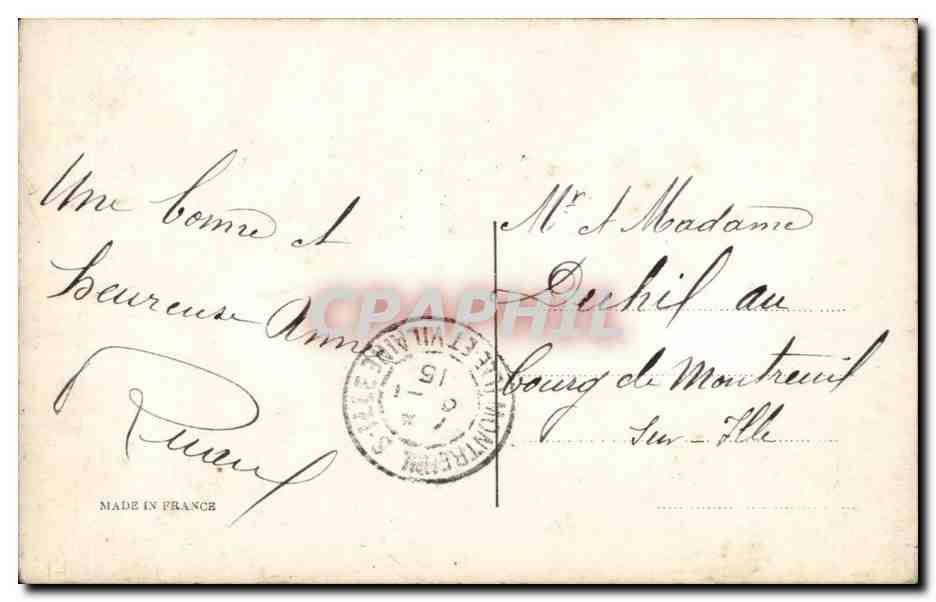 Une bonne et
heureuse Année
Mr et Madame
Duhil au
bourg de Montreuil
sur-Ille
MONTREUIL S-ILLE ILLE ET VILAINE
16
MADE IN FRANCE
CPAPHIL